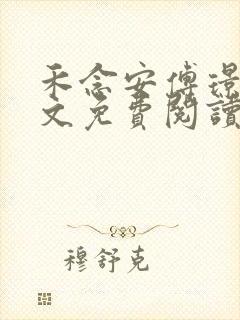 禾念安傅璟
文免費閱讀
穆舒克